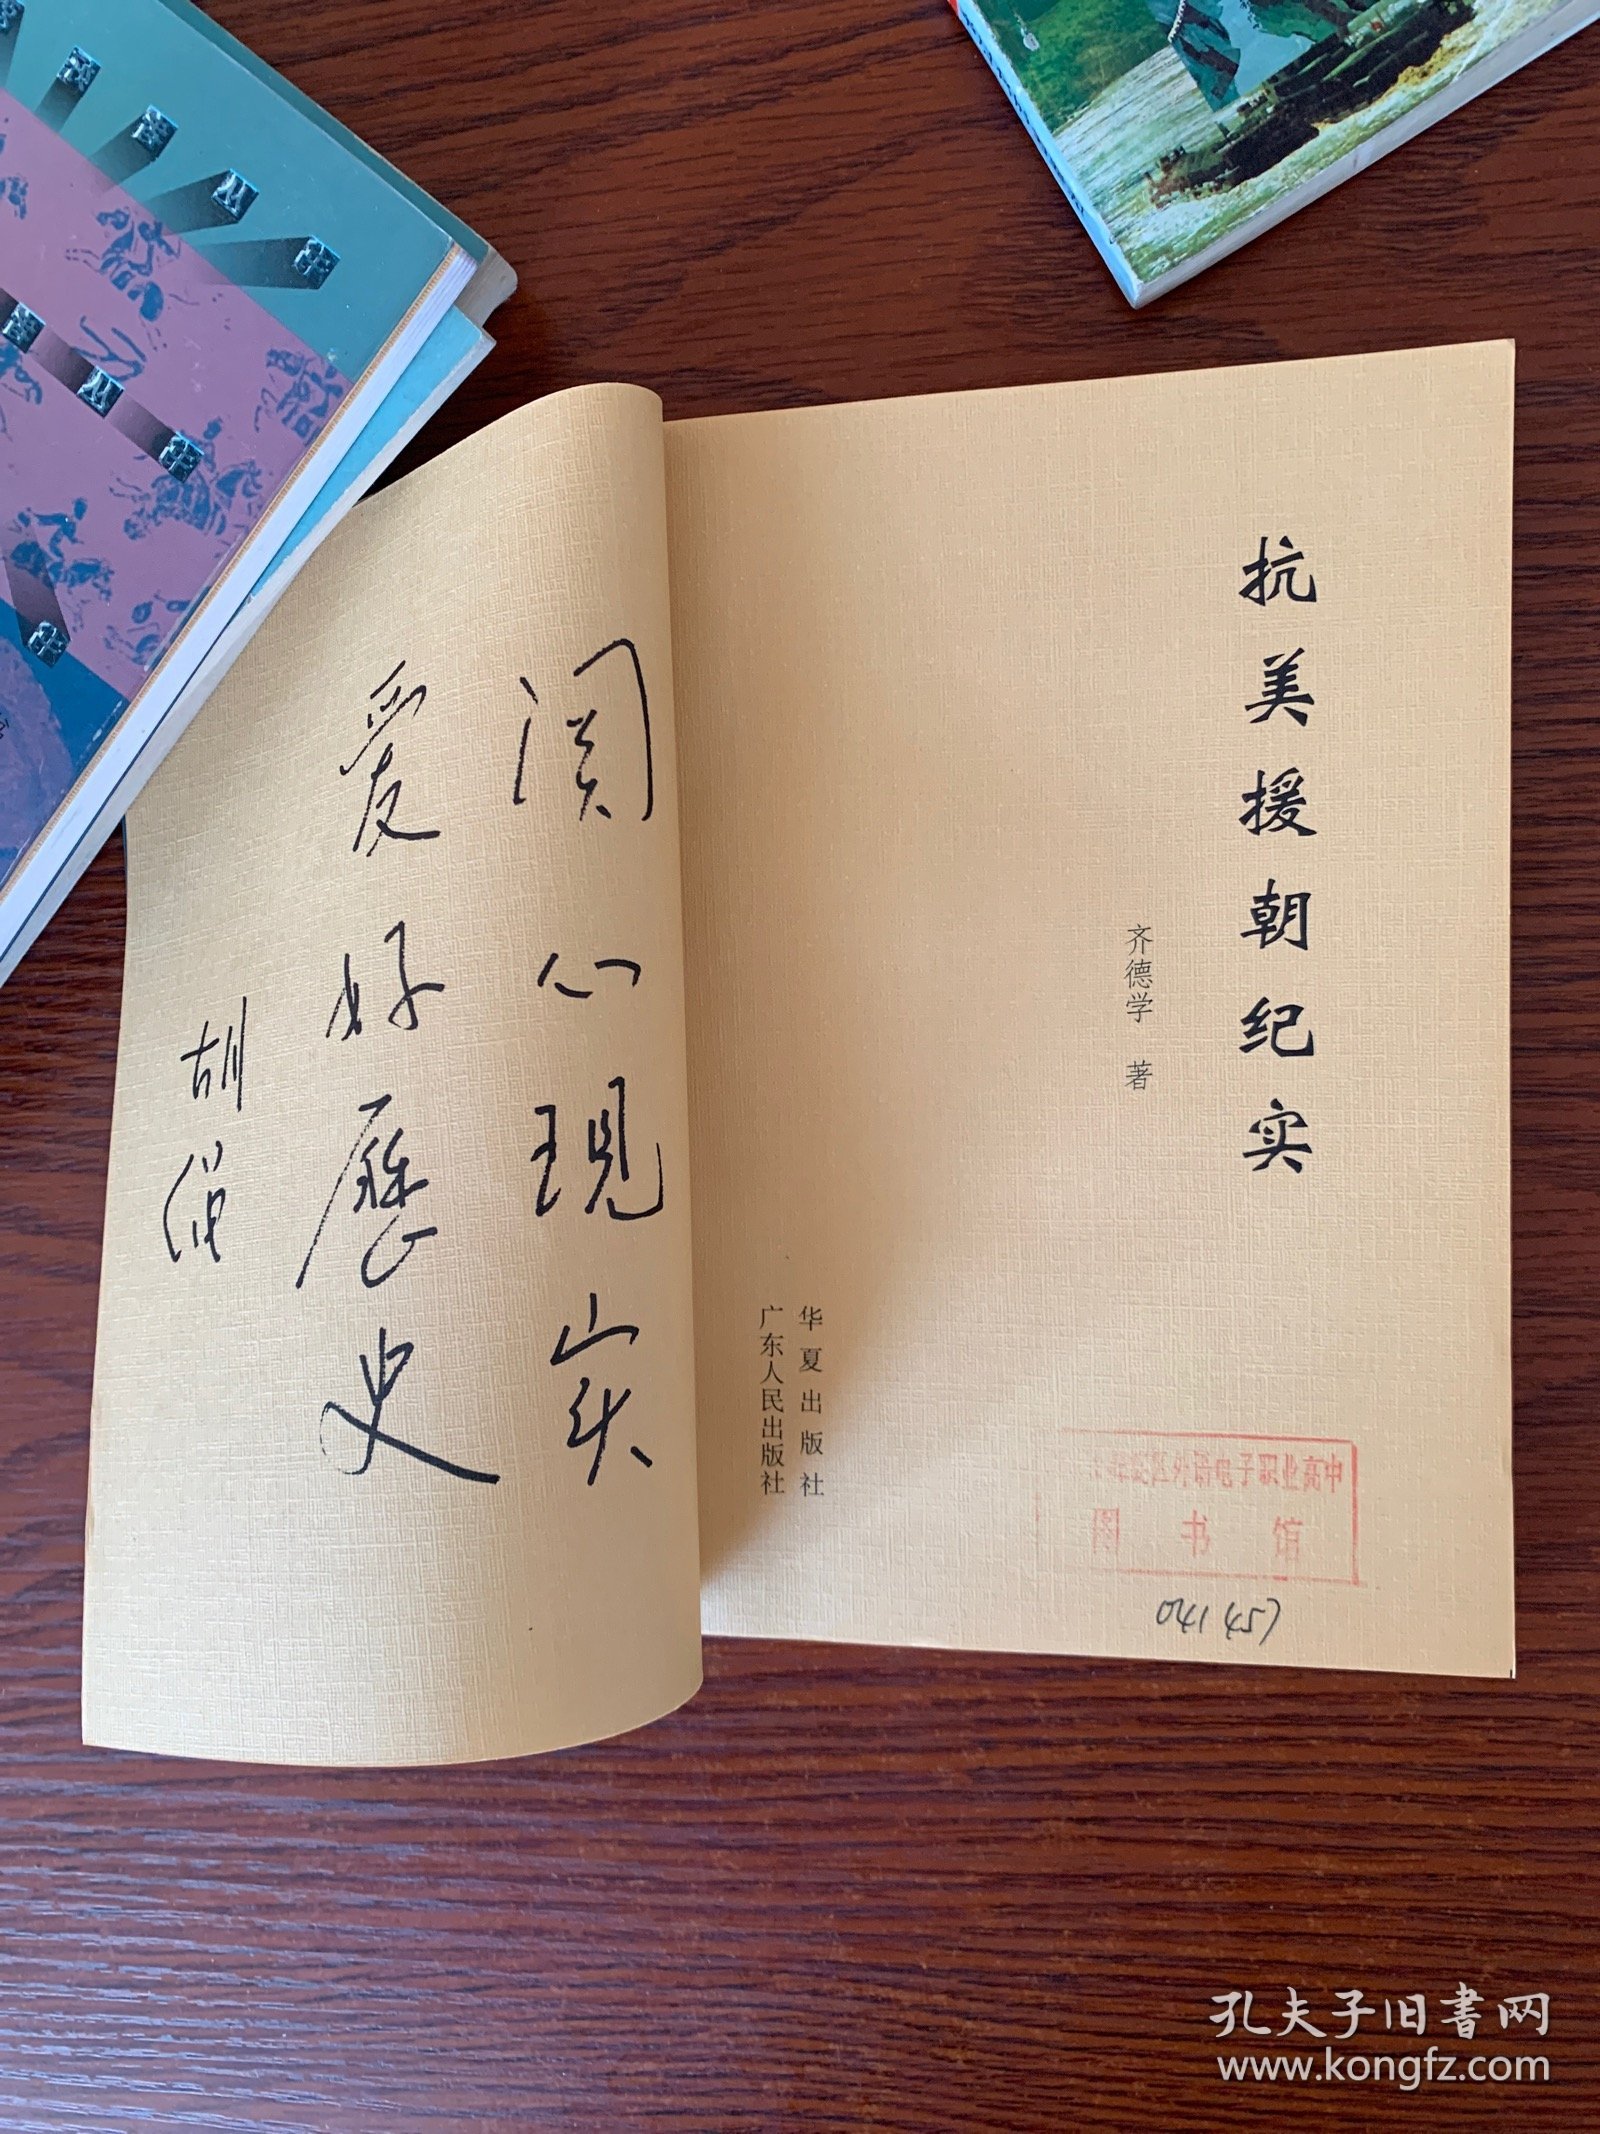 抗美援朝纪实
齐德学 著
华夏出版社
广东人民出版社
区外语电子职业高中
图书馆
关心现实
爱好历史
胡绳
孔夫子旧书网
www.kongfz.com